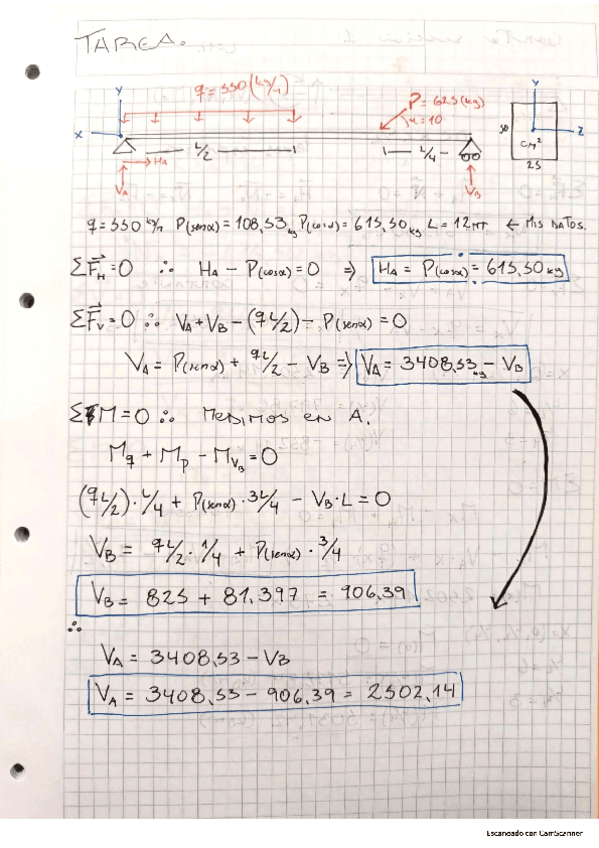 TAREA.
q = 550 (kg/m)
P = 625 (kg)
α = 10
Y
X
HA
L/2
L/4
VA
VB
Y
Z
50
cm²
25
q = 550 kg/m P(senα) = 108,53 kg P(cosα) = 615,50 kg L = 12 MT ← MIS DATOS.
ΣF_H = 0 ∴ HA - P(cosα) = 0 ⇒ HA = P(cosα) = 615,50 kg
ΣF_V = 0 ∴ VA + VB - (qL/2) - P(senα) = 0
VA = P(senα) + qL/2 - VB ⇒ VA = 3408,53 kg - VB
ΣM = 0 ∴ MEDIMOS EN A.
Mq + Mp - M_VB = 0
(qL/2)·L/4 + P(senα)·3L/4 - VB·L = 0
VB = qL/2·1/4 + P(senα)·3/4
VB = 825 + 81.397 = 906,39
∴
VA = 3408,53 - VB
VA = 3408,53 - 906,39 = 2502,14
Escaneado con CamScanner